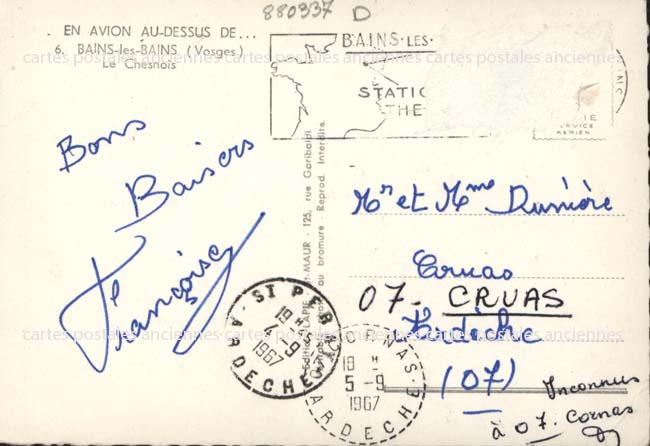 880337 D
EN AVION AU-DESSUS DE...
6. BAINS-les-BAINS (Vosges)
Le Chesnois
BAINS·LES·
STATIO
THE
IE
SERVICE
AERIEN
cartes postales anciennes cartes postales anciennes cartes postales anciennes
Bons
Baisers
Françoise
MAUR - 125, rue Garibaldi
au bromure - Reprod. Interdite.
Mr et Mme Dumière
Cruas
07. CRUAS
Ardèche
(07)
Inconnus
à 07. Cornas
ST PERAY
19
4-9
1967
ARDECHE
18 H
5-9
1967
ARDECHE
cartes postales anciennes cartes postales anciennes cartes postales anciennes